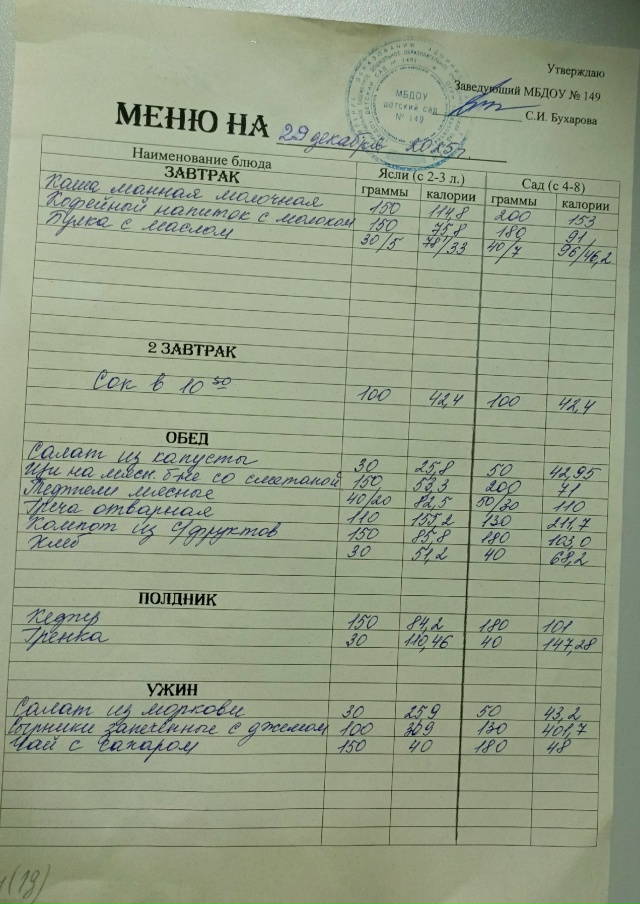 Утверждаю
Заведующий МБДОУ № 149
С.И. Бухарова
МБДОУ
детский сад
№ 149
МЕНЮ НА 29 декабря 2025г.
Наименование блюда Ясли (с 2-3 л.) Сад (с 4-8)
граммы калории граммы калории
ЗАВТРАК
Каша манная молочная 150 114,8 200 153
Кофейный напиток с молоком 150 75,8 180 91
Булка с маслом 30/5 78/33 40/7 96/46,2
2 ЗАВТРАК
Сок в 10 30 100 42,4 100 42,4
ОБЕД
Салат из капусты 30 25,8 50 42,95
Щи на мясн. б-не со сметаной 150 53,3 200 71
Тефтели мясные 40/20 82,5 50/30 110
Греча отварная 110 155,2 130 211,7
Компот из с/фруктов 150 85,8 180 103,0
Хлеб 30 51,2 40 68,2
ПОЛДНИК
Кефир 150 84,2 180 101
Гренка 30 110,46 40 147,28
УЖИН
Салат из моркови 30 25,9 50 43,2
Сырники запеченные с джемом 100 309 130 401,7
Чай с сахаром 150 40 180 48
(19)